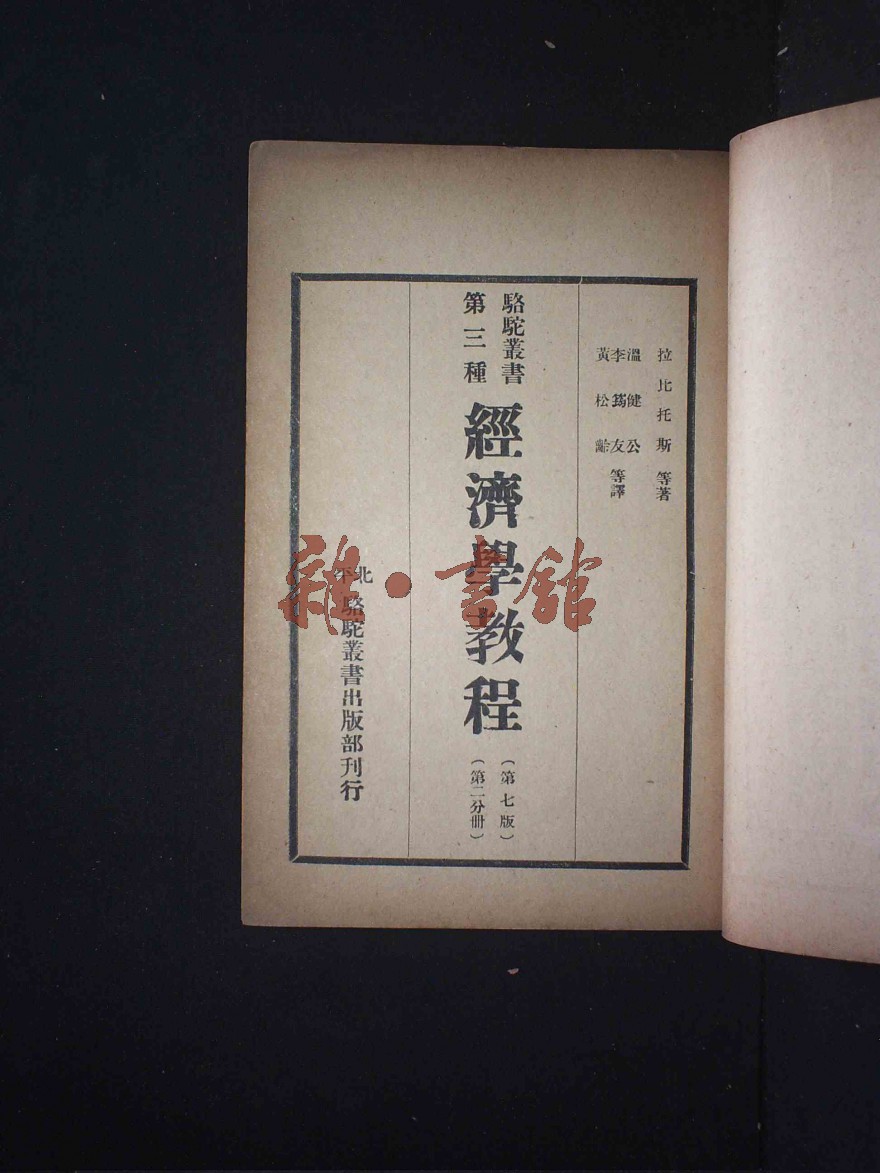 拉比托斯等著
溫健公
李蒟友等譯
黃松齡
駱駝叢書
第三種
經濟學教程
（第七版）
（第二分冊）
北平
駱駝叢書出版部刊行
雜·書館